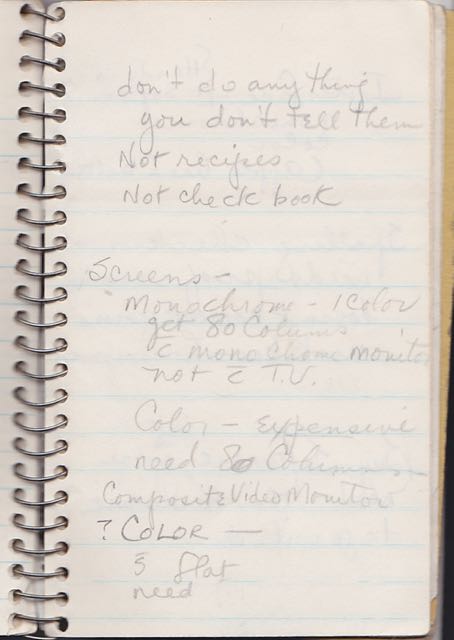 don't do any thing
you don't tell them
Not recipes
Not check book
Screens -
Monochrome - 1 color
get 80 Colums
c̄ mono chome monitor
not c̄ T.V.
Color - Expensive
need 80 Columns
Composite Video Monitor
? COLOR —
flat
need